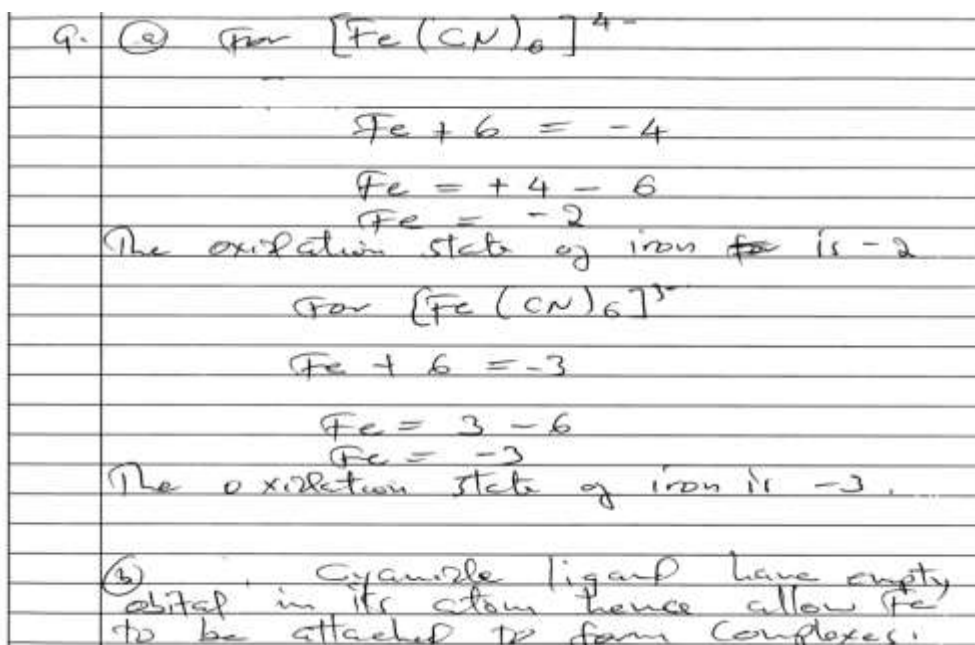 9. (a) For [Fe(CN)6]4-
Fe + 6 = -4
Fe = +4 - 6
Fe = -2
The oxidation state of iron is -2
For [Fe(CN)6]3-
Fe + 6 = -3
Fe = 3 - 6
Fe = -3
The oxidation state of iron is -3.
(b) Cyanide ligand have empty
obital in its atom hence allow Fe
to be attached to form complexes.